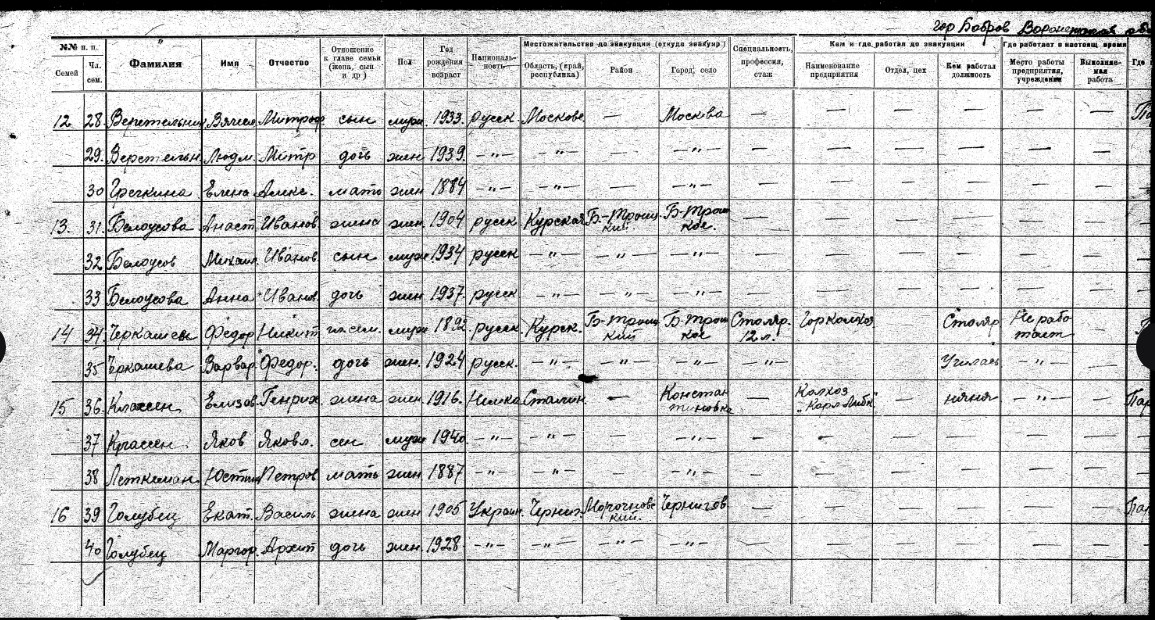 гор Бобров Воронежской
№№ п. п. Фамилия Имя Отчество Отношение к главе семьи (жена, сын и др) Пол Год рождения возраст Националь-ность Местожительство до эвакуации (откуда эвакуир.) Специальность, профессия, стаж Кем и где работал до эвакуации Где работает в настоящ. время Где
Семей Чл. сем. Область, (край, республика) Район Город, село Наименование предприятия Отдел, цех Кем работал должность Место работы предприятия, учреждения Выполняе-мая работа
12 28 Веретельник Вячесл Митроф сын муж 1933 русск Москов — Москва — — — — — —
29. Веретельн Людм. Митр дочь жен 1939 -"- -"- — -"- — — — — — —
30 Гречкина Елена Алекс. мать жен 1884 -"- -"- — -"- — — — — — —
13. 31. Белоусова Анаст Иванов жена жен. 1904 русск Курская Б-Троиц кий Б-Троиц кое. — — — — — —
32 Белоусов Михаил Иванов сын муж 1934 русск -"- -"- -"- — — — — — —
33 Белоусова Анна Иванов дочь жен. 1937. русск -"- -"- -"- — — — — — —
14 34 Черкашев Федор Никит гл. сем. муж 1892 русск Курск. Б-Троиц кий Б-Троиц кое Столяр. 12 л. Горколхоз — Столяр Не рабо тает —
35 Черкашева Варвар Федор. дочь жен. 1924 русск. -"- -"- -"- — — — Училась -"- —
15 36 Классен Елизав Генрих жена жен. 1916. Немка Сталин — Констан тиновка — Колхоз "Карл Либк" — няня -"- — Пар
37 Классен Яков Яковл. сын муж 1940 -"- -"- — -"- — — — — — —
38 Петкеман Юстин Петров мать жен. 1887 -"- -"- — -"- — — — — — —
16 39 Голубец Екат. Василь жена жен 1905 Украин. Черниг. Чернигов — — — — — — Пар
40 Голубец Маргар. Архип дочь жен. 1928 -"- -"- -"- -"- — — — — — —